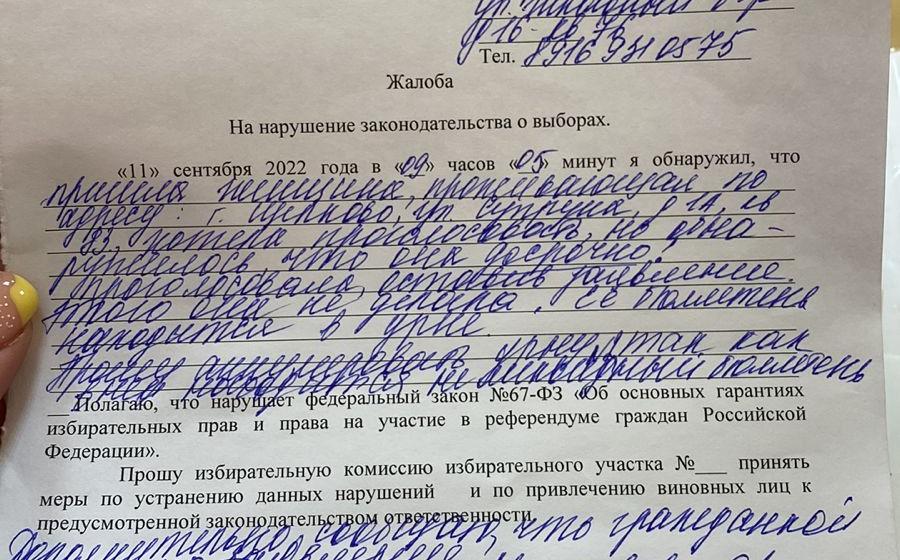 Тел. 8916 931 0575
Жалоба
На нарушение законодательства о выборах.
«11» сентября 2022 года в «09» часов «05» минут я обнаружил, что
пришла женщина, проживающая по
адресу: г. Щелково, ул. д 1а, кв
83, хотела проголосовать, но обна-
ружилось что она досрочно
проголосовала оставив заявление.
Этого она не делала. Её бюллетень
находится в урне.
Прошу аннулировать урну, так как
там находится не бюллетень
Полагаю, что нарушает федеральный закон №67-ФЗ «Об основных гарантиях
избирательных прав и права на участие в референдуме граждан Российской
Федерации».
Прошу избирательную комиссию избирательного участка №___ принять
меры по устранению данных нарушений и по привлечению виновных лиц к
предусмотренной законодательством ответственности.
Дополнительно сообщаю, что гражданкой